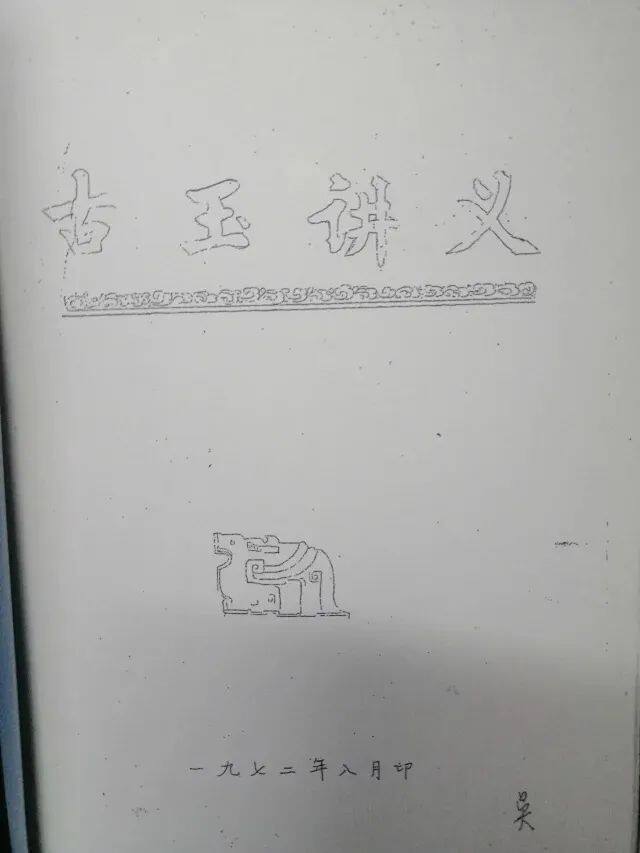 古玉讲义
一九七二年八月印
吴